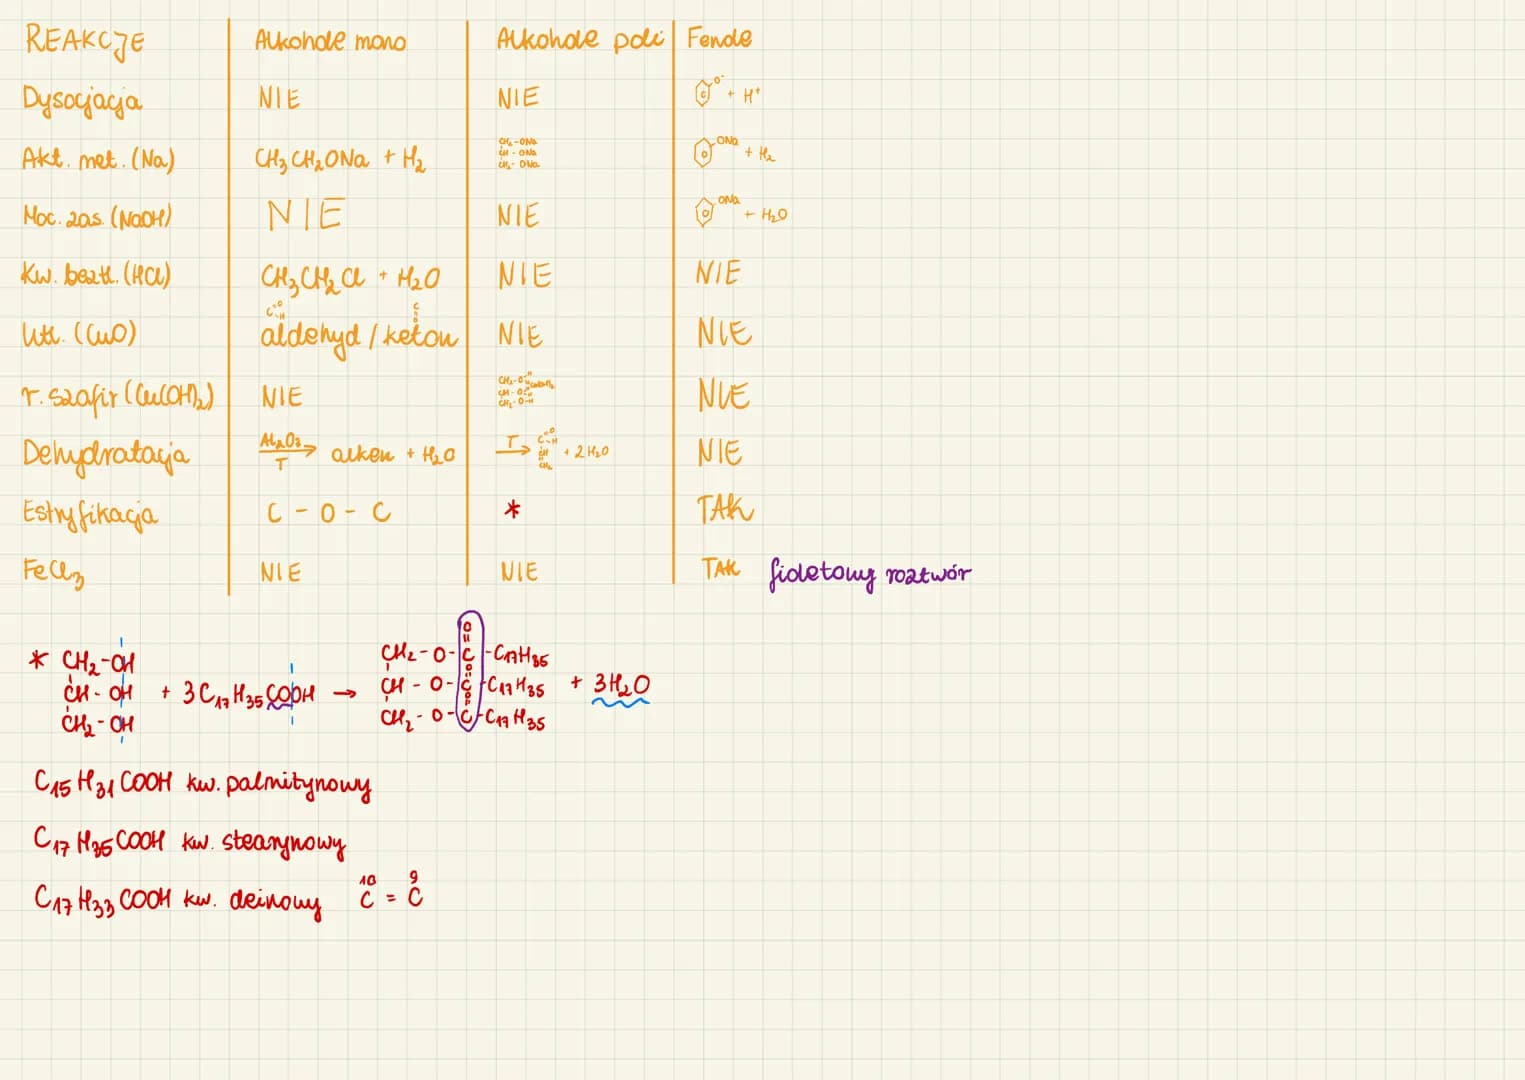 REAKCJE Alkohole mono Alkohole poli Fenole
Dysocjacja NIE NIE O⁻ + H⁺
Akt. met. (Na) CH₃CH₂ONa + H₂ CH₂-ONa CH-ONa CH₂-ONa ONa + H₂
Moc. zas. (NaOH) NIE NIE ONa + H₂O
Kw. beztl. (HCl) CH₃CH₂Cl + H₂O NIE NIE
Utl. (CuO) aldehyd / keton NIE NIE
r. szafir (Cu(OH)₂) NIE NIE
Dehydratacja Al₂O₃ T → alken + H₂O T → C=O -H CH = CH₂ + 2H₂O NIE
Estryfikacja C - O - C * TAK
FeCl₃ NIE NIE TAK fioletowy roztwór
* CH₂-OH CH₂-O-C-C₁₇H₃₅
CH-OH + 3C₁₇H₃₅COOH → CH-O-C-C₁₇H₃₅ + 3H₂O
CH₂-OH CH₂-O-C-C₁₇H₃₅
C₁₅H₃₁COOH kw. palmitynowy
C₁₇H₃₅COOH kw. stearynowy
C₁₇H₃₃COOH kw. oleinowy 10 C = 9 C